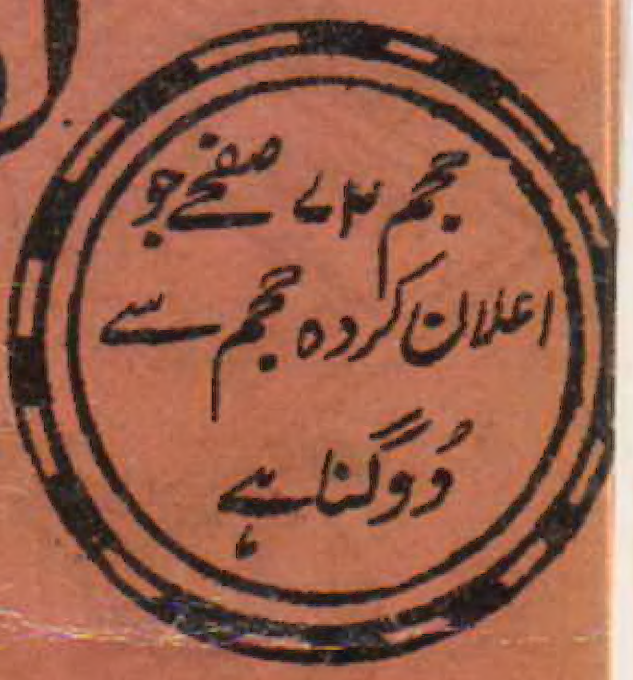 حجم ۷۲ صفحے جو
اعلان کردہ حجم سے
دُوگنا ہے